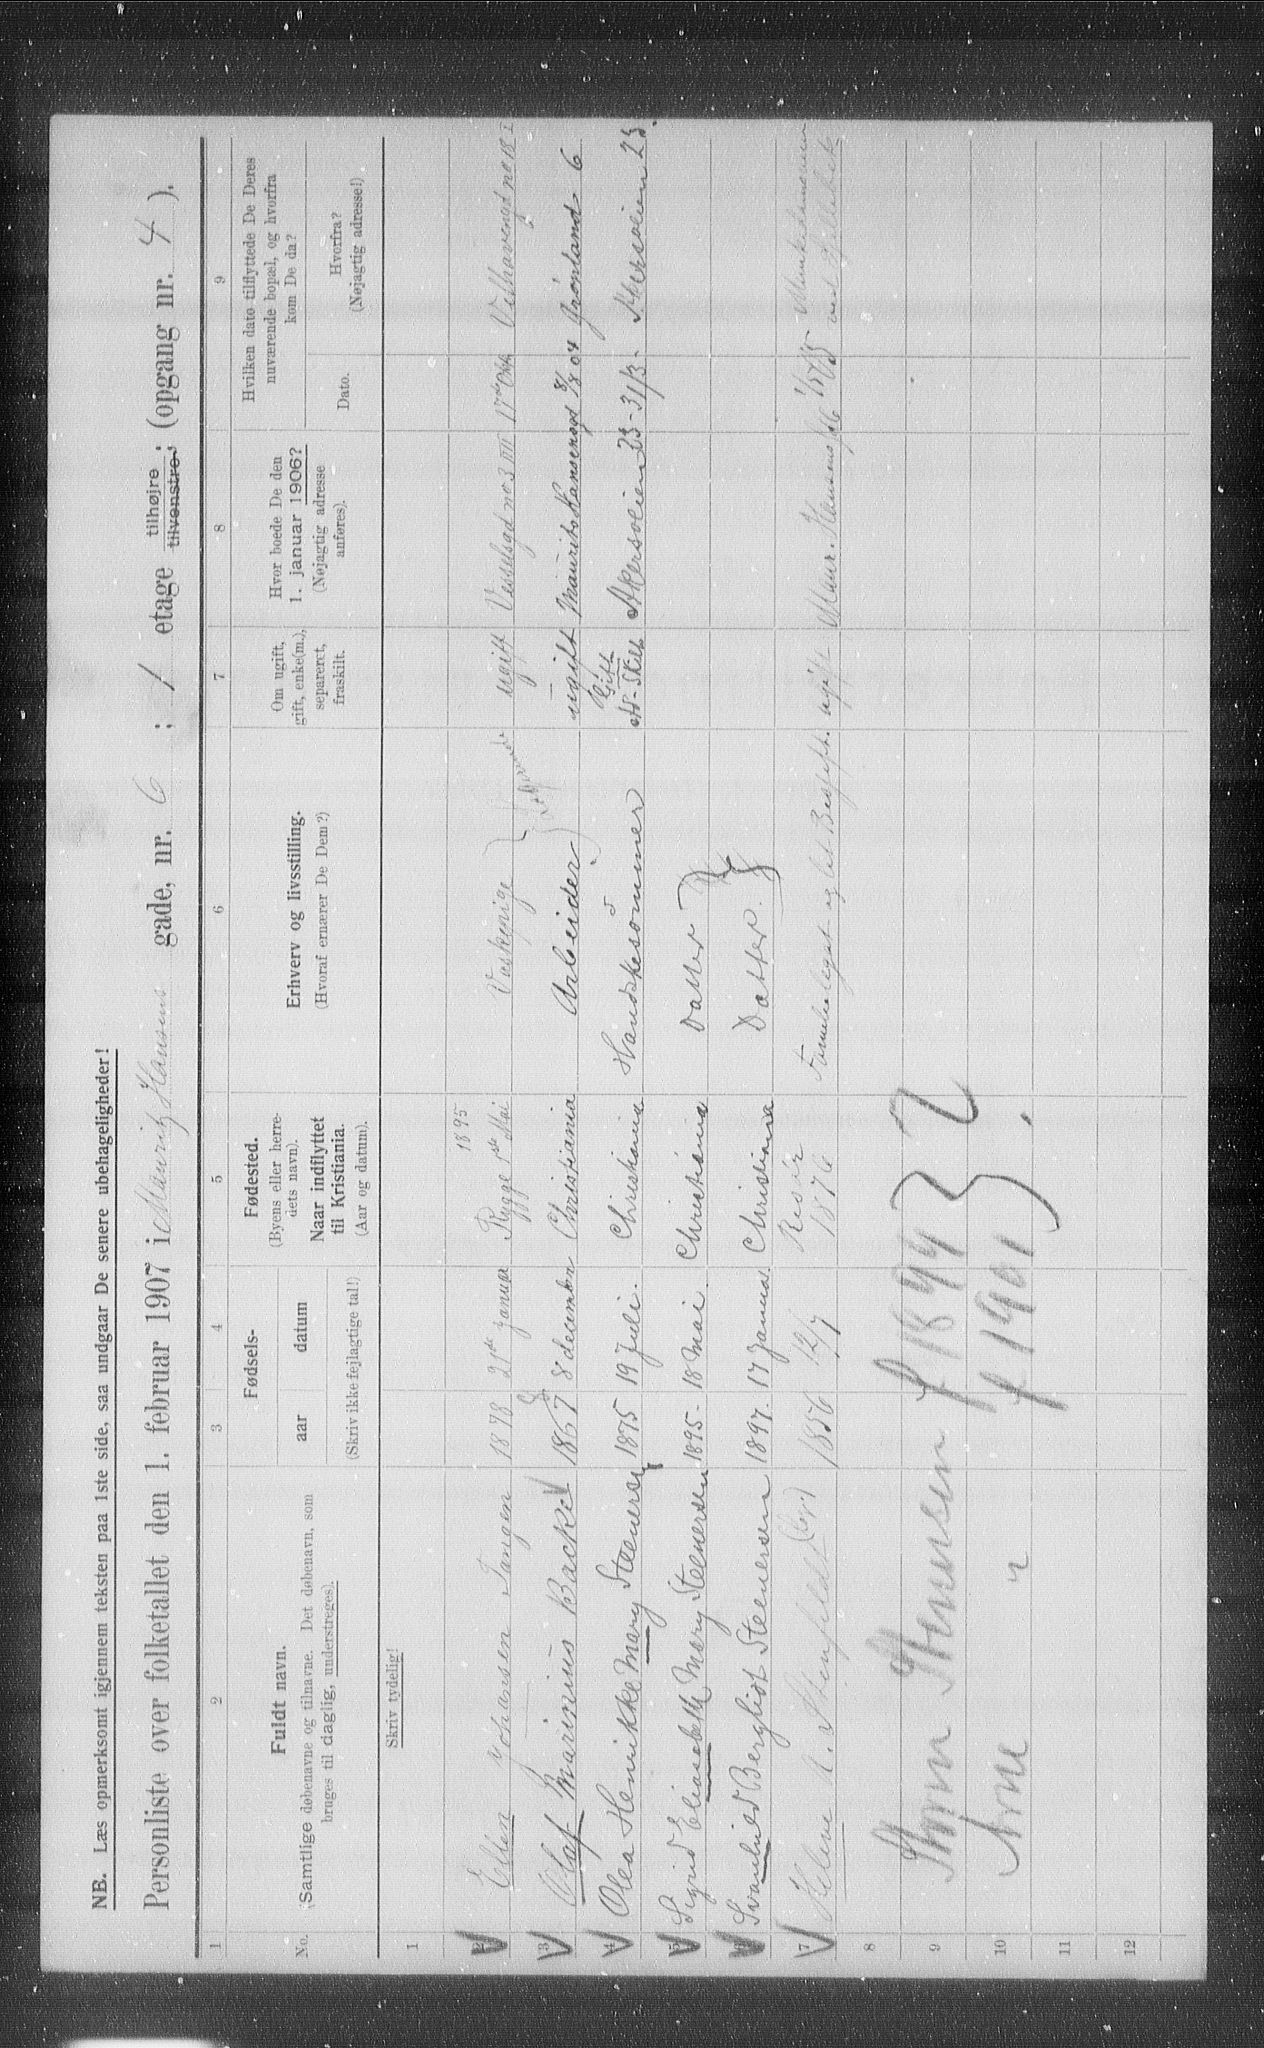 NB. Læs opmerksomt igjennem teksten paa 1ste side, saa undgaar De senere ubehageligheder!
Personliste over folketallet den 1. februar 1907 i Mauritz Hansens gade, nr. 6 ; 1 etage tilhøjre / tilvenstre; (opgang nr. 4 ).
1 2 3 4 5 6 7 8 9
No.
Fuldt navn.
(Samtlige døbenavne og tilnavne. Det døbenavn, som
bruges til daglig, understreges).
Fødsels-
aar datum
(Skriv ikke fejlagtige tal!)
Fødested.
(Byens eller herre-
dets navn).
Naar indflyttet
til Kristiania.
(Aar og datum).
Erhverv og livsstilling.
(Hvoraf ernærer De Dem?)
Om ugift,
gift, enke(m.),
separeret,
fraskilt.
Hvor boede De den
1. januar 1906?
(Nøjagtig adresse
anføres).
Hvilken dato tilflyttede De Deres
nuværende bopæl, og hvorfra
kom De da?
Dato.
Hvorfra?
(Nøjagtig adresse!)
Skriv tydelig!
1
1895
2 Ellen Johansen Tangen 1878 21de januar Rygge 1ste Mai Vaskepige ugift Vesselsgd no 3 III 17de Okt no 18 I
3 Olaf Marinius Backe 1867 8 december Christiania Arbeider ugift Maurits Hansensgd 8/8 04 Grønland 6
Gift
4 Olea Henrikke Mary Steenersen 1875 19 Juli. Christiania Handskesømmer Akersveien 23 - 31/3. Akersveien 23.
5 Sigrid Eliasabeth Mary Steenersen 1895. 18 Mai. Christiania Datter
6 Svanhild Bergliot Steenersen 1897. 17 Januar. Christiania Datter.
7 Helene 1856 12/7 1876 og lidt ugift Maur. Hansens g 6
8
9 f 1899
10 Arne " f 1901
11
12